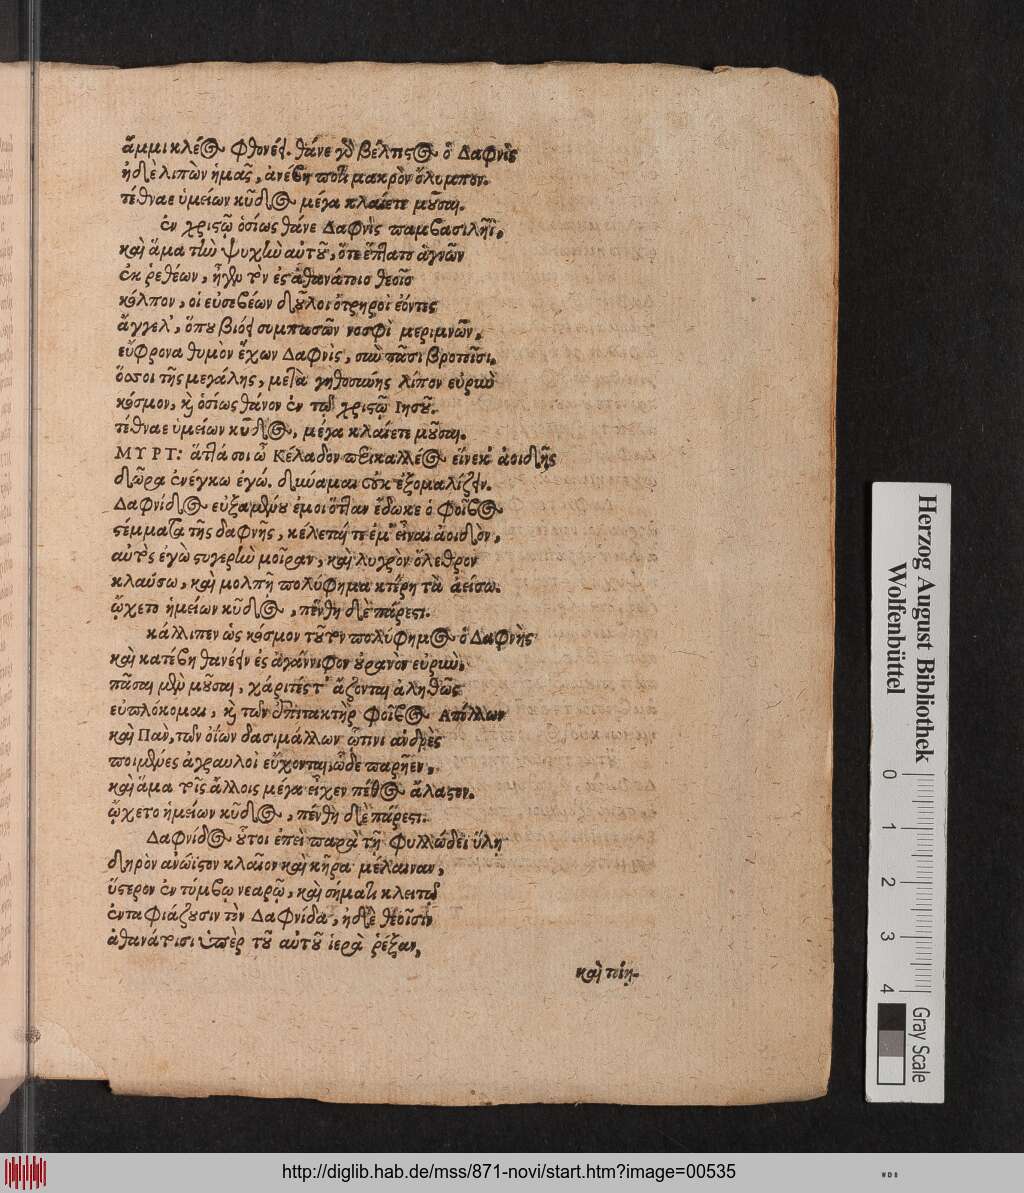 ἄμμι κλέος φθονέει. θάνε γὸ βέλτιστος ὁ Δαφνὶς
ἠδὲ λιπὼν ἡμᾶς, ἀνέβη ποτὶ μακρὸν ὄλυμπον.
τέθναε ὑμείων κῦδος μέγα κλαίετε μοῦσαι.
ἐν χριστῷ ὁσίως θάνε Δαφνὶς παμβασιλῆϊ,
καὶ ἅμα τὼ ψυχὼ αὐτοῦ, ὅτε ἕπτατο ἁγνῶν
ἐκ ῥεθέων, ἦγον τὸν ἐς ἀθανάτοιο θεοῖο
κόλπον, οἱ εὐσεβέων δοῦλοι ὀτρηροὶ ἐόντες
ἄγγελ', ὅπου βιόει συμπασῶν νοσφὶ μεριμνῶν,
εὔφρονα θυμὸν ἔχων Δαφνὶς, σὺν πᾶσι βροτεῖσι,
ὅσσοι τῆς μεγάλης, μετὰ γηθοσύνης λίπον εὐρὺν
κόσμον, καὶ ὁσίως θάνον ἐν τῷ χριστῷ Ιησοῦ.
τέθναε ὑμείων κῦδος, μέγα κλαίετε μοῦσαι.
ΜΥΡΤ: ἅττα σοι ὦ Κέλαδον περικαλλέος εἵνεκ' ἀοιδῆς
δῶρα ἐνέγκω ἐγώ. δύναμαι οὐκ ἐξομαλίζειν.
Δαφνίδος εὐξαμένου ἐμοι ὅτταν ἔδωκε ὁ Φοῖβος
στέμματα τῆς δαφνῆς, κέλεταί τε ἐμ' εἶναι ἀοιδὸν,
αὐτὸς ἐγὼ στυγερὼ μοῖραν, καὶ λυγρὸν ὄλεθρον
κλαύσω, καὶ μολπῇ πολύφημα κτέρη τὰ ἀείσω.
ᾤχετο ἡμείων κῦδος, πένθη δὲ πάρεστι.
κάλλιπεν ὡς κόσμον τοῦτον πολύφημος ὁ Δαφνὴς
καὶ κατέβη θανέειν ἐς ἀγάννιφον οὐρανὸν εὐρὺν,
πᾶσαι μὲν μοῦσαι, χάριτές τ' ἄζονται ἀληθῶς
εὐπλόκομαι, καὶ τῶν ἐπιτακτὴρ φοῖβος Απόλλων
καὶ Πὰν, τῶν ὀΐων δασιμάλλων ᾧτινι ἀνδρὲς
ποιμένες ἀγραυλοὶ εὔχονται, ὧδε παρῆεν,
καὶ ἅμα τοῖς ἄλλοις μέγα εἶχεν πένθος ἄλαστον.
ᾤχετο ἡμείων κῦδος, πένθη δὲ πάρεστι.
Δαφνίδος οὗτοι ἐπεὶ παρὰ τῇ φυλλώδει ὕλῃ
δηρὸν ἀνώϊστον κλαῖον καὶ κῆρα μέλαιναν,
ὕστερον ἐν τύμβῳ νεαρῷ, καὶ σήματι κλειτῷ
ἐνταφιάζουσιν τὸν Δαφνίδα, ἠδὲ θεοῖσιν
ἀθανάτοισι ὑπὲρ τοῦ αὐτοῦ ἱερὰ ῥέξαν,
καὶ ποίη-
Herzog August Bibliothek
Wolfenbüttel
0 1 2 3 4
Gray Scale
http://diglib.hab.de/mss/871-novi/start.htm?image=00535